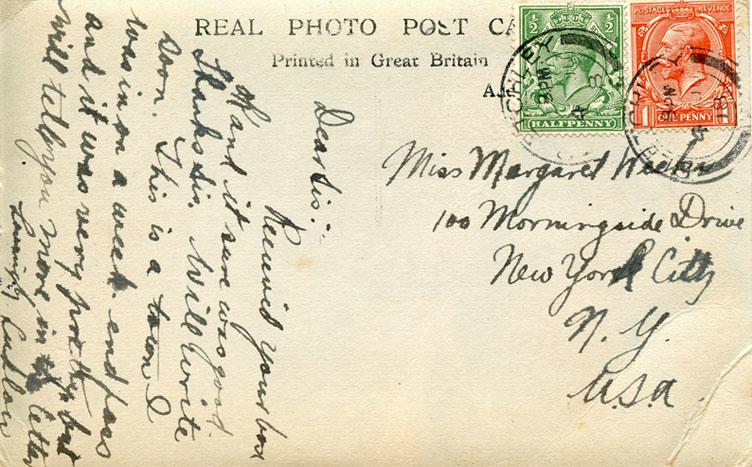 REAL PHOTO POST CA
Printed in Great Britain
½ ½
HALFPENNY
POSTAGE REVENUE
1 ONE PENNY
Dear Sis:-
Received your box
and it sure was good
Thanks Sis. Will write
soon. This is a town I
was in on a week-end pass
and it was very pretty but
will tell you more in letter
Miss Margaret
100 Morningside Drive
New York City
N. Y.
U.S.A.